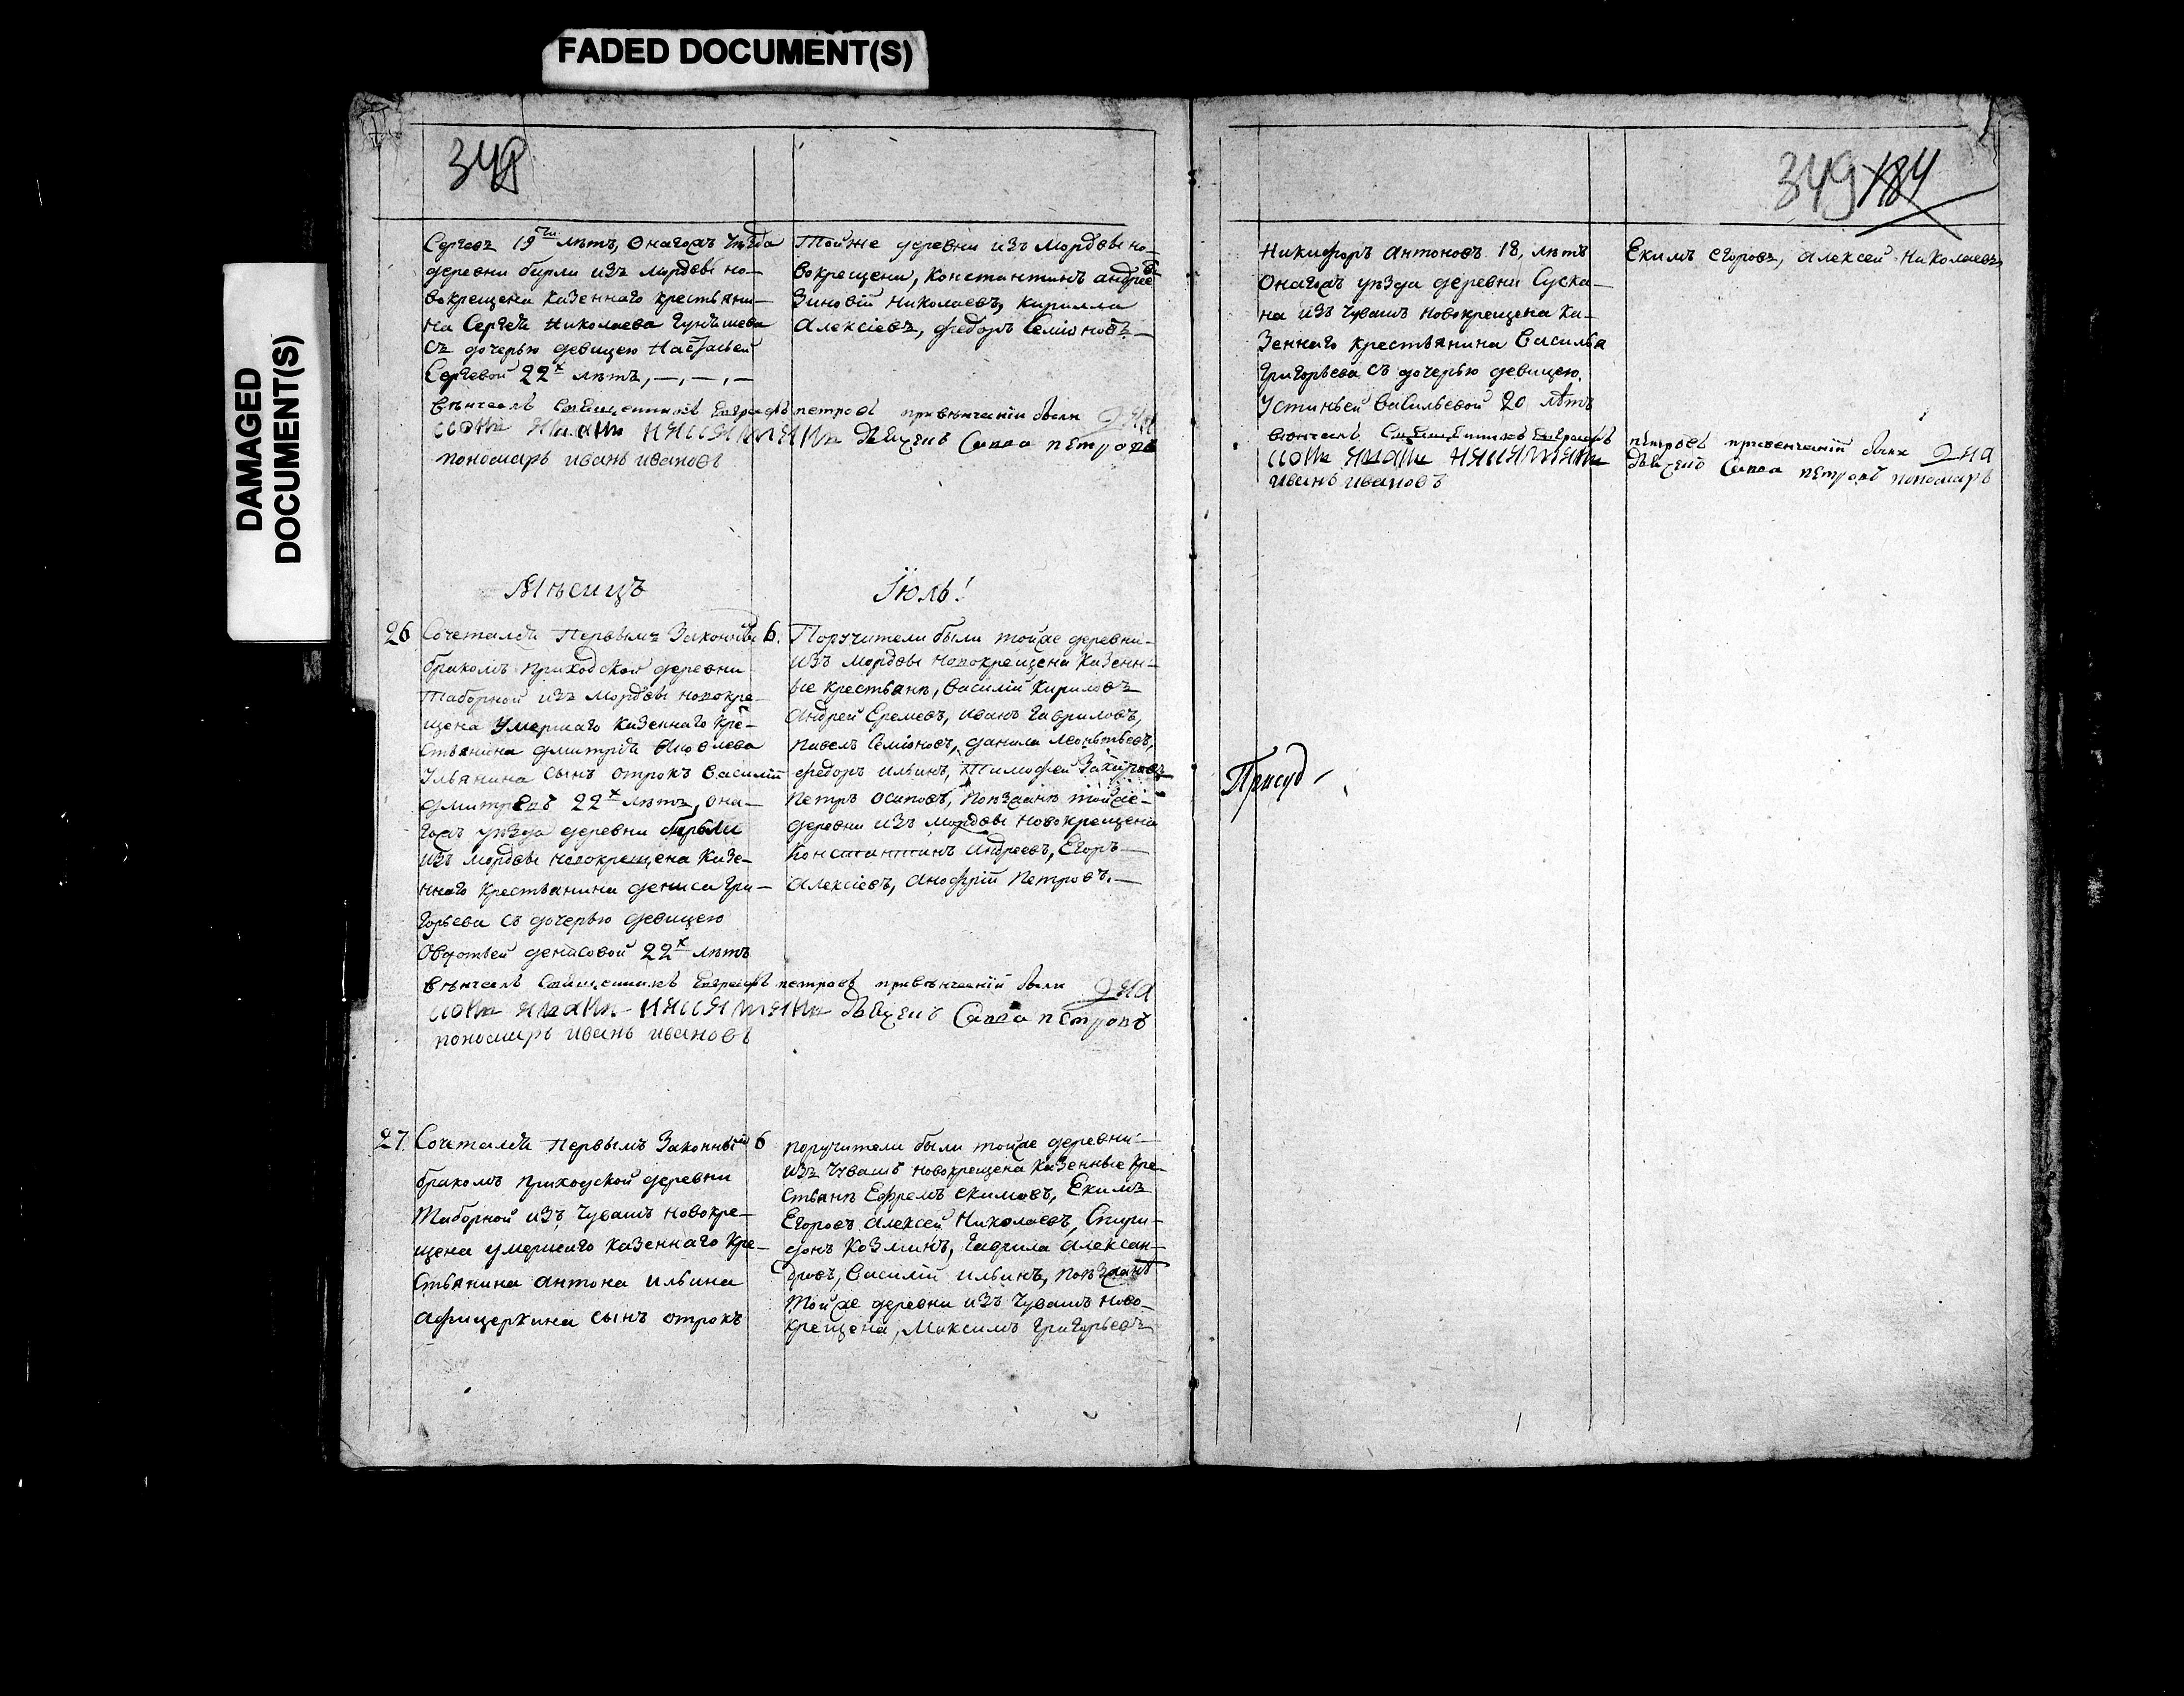 FADED DOCUMENT(S)
DAMAGED
DOCUMENT(S)
348
Сергеев 19ти лѣтъ, Онагожъ уѣзда
деревни бирли изъ мордвы но-
вокрещена казеннаго крестьяни-
на Сергея Николаева
съ дочерью девицею Настасьей
Сергевой 22х лѣтъ, —, —, —
тойже деревни изъ мордвы но-
вокрещени, Константинъ андрее
Зиновій Николаевъ, кирилла
Алексіевъ, федоръ Семіоновъ. —
вѣнчалъ Священникъ петровъ привѣнчаніи были
Савва петровъ
пономарь иванъ ивановъ
Мѣсицъ Їюль!
26 Сочетался Первымъ Законны 6.
бракомъ приходской деревни
Таборной изъ мордвы новокре-
щена умершаго казеннаго кре-
стьянина дмитрія Яковлева
Ульянина сынъ отрокъ Василій
дмитревъ 22х лѣтъ, она-
гожъ уѣзда деревни бирьли
изъ мордвы новокрещена казе-
ннаго крестьянина дениса гри-
горьева съ дочерью девицею
Овдотьей денисовой 22х лѣтъ
Поручители были тойже деревни-
изъ мордвы новокрещена казенн-
ые крестьянѣ, Василій кириловъ
Андрей Еремеевъ, иванъ гавриловъ,
павелъ Семіоновъ, данила леонтьевъ,
федоръ ильинъ, Тимофей
петръ осиповъ, поѣзжанѣ тойже-
деревни изъ мордвы новокрещена
Константинъ андреевъ, Егоръ —
Алексіевъ, анофрій петровъ. —
вѣнчалъ Священникъ петровъ привѣнчаніи были
Савва петровъ
пономарь иванъ ивановъ
27. Сочетался первымъ Законны 6
бракомъ приходской деревни
Таборной изъ чувашъ новокре-
щена умершаго казеннаго кре-
стьянина антона ильина
афицеркина сынъ отрокъ
поручители были тойже деревни-
изъ чувашъ новокрещена казенные кре-
стьянѣ Ефремъ екимовъ, Екимъ
Егоровъ алексей Николаевъ, Спири-
донъ козминъ, гаврила алексан-
дровъ, Василій ильинъ, поѣзжанѣ
тойже деревни изъ чувашъ ново-
крещена, Максимъ григорьевъ
349 184
Никифоръ антоновъ 18, лѣтъ
онагожъ уѣзда деревни Суска-
на изъ чувашъ новокрещена ка-
зеннаго крестьянина Василья
григорьева съ дочерью девицею,
Устиньей Васильевой 20 лѣтъ
Екимъ егоровъ, алексей Николаевъ
вѣнчалъ Священникъ петровъ привенчаніи были
Савва петровъ пономарь
иванъ ивановъ